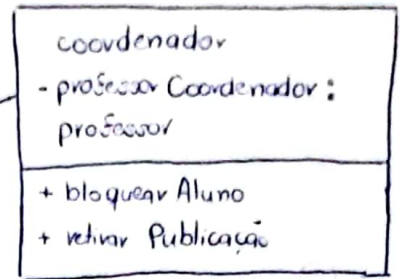 coordenador
- professor Coordenador :
professor
+ bloquear Aluno
+ retirar Publicação